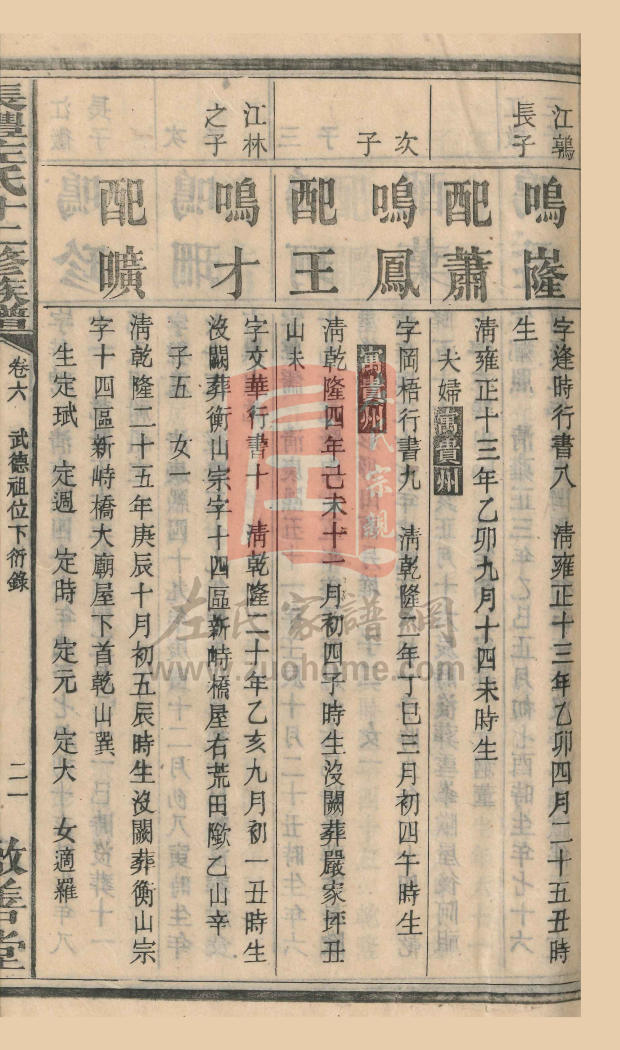 江鶉
長子
鳴嶐
字逢時行書八　清雍正十三年乙卯四月二十五丑時
生
配蕭
清雍正十三年乙卯九月十四未時生
夫婦寓貴州
次
子
鳴鳳
字岡梧行書九　清乾隆二年丁巳三月初四午時生
寓貴州
配王
清乾隆四年己未十二月初四子時生沒闕葬嚴家坪丑
山未
江林
之子
鳴才
字文華行書十　清乾隆二十年乙亥九月初一丑時生
沒闕葬衡山宗字十四區新峙橋屋右荒田墈乙山辛
子五　女一
配曠
清乾隆二十五年庚辰十月初五辰時生沒闕葬衡山宗
字十四區新峙橋大廟屋下首乾山巽
生定珷　定週　定時　定元　定大　女適羅
長澧左氏十二修族譜
卷六　武德祖位下衍錄
二一
左氏家譜網
www.zuohome.com